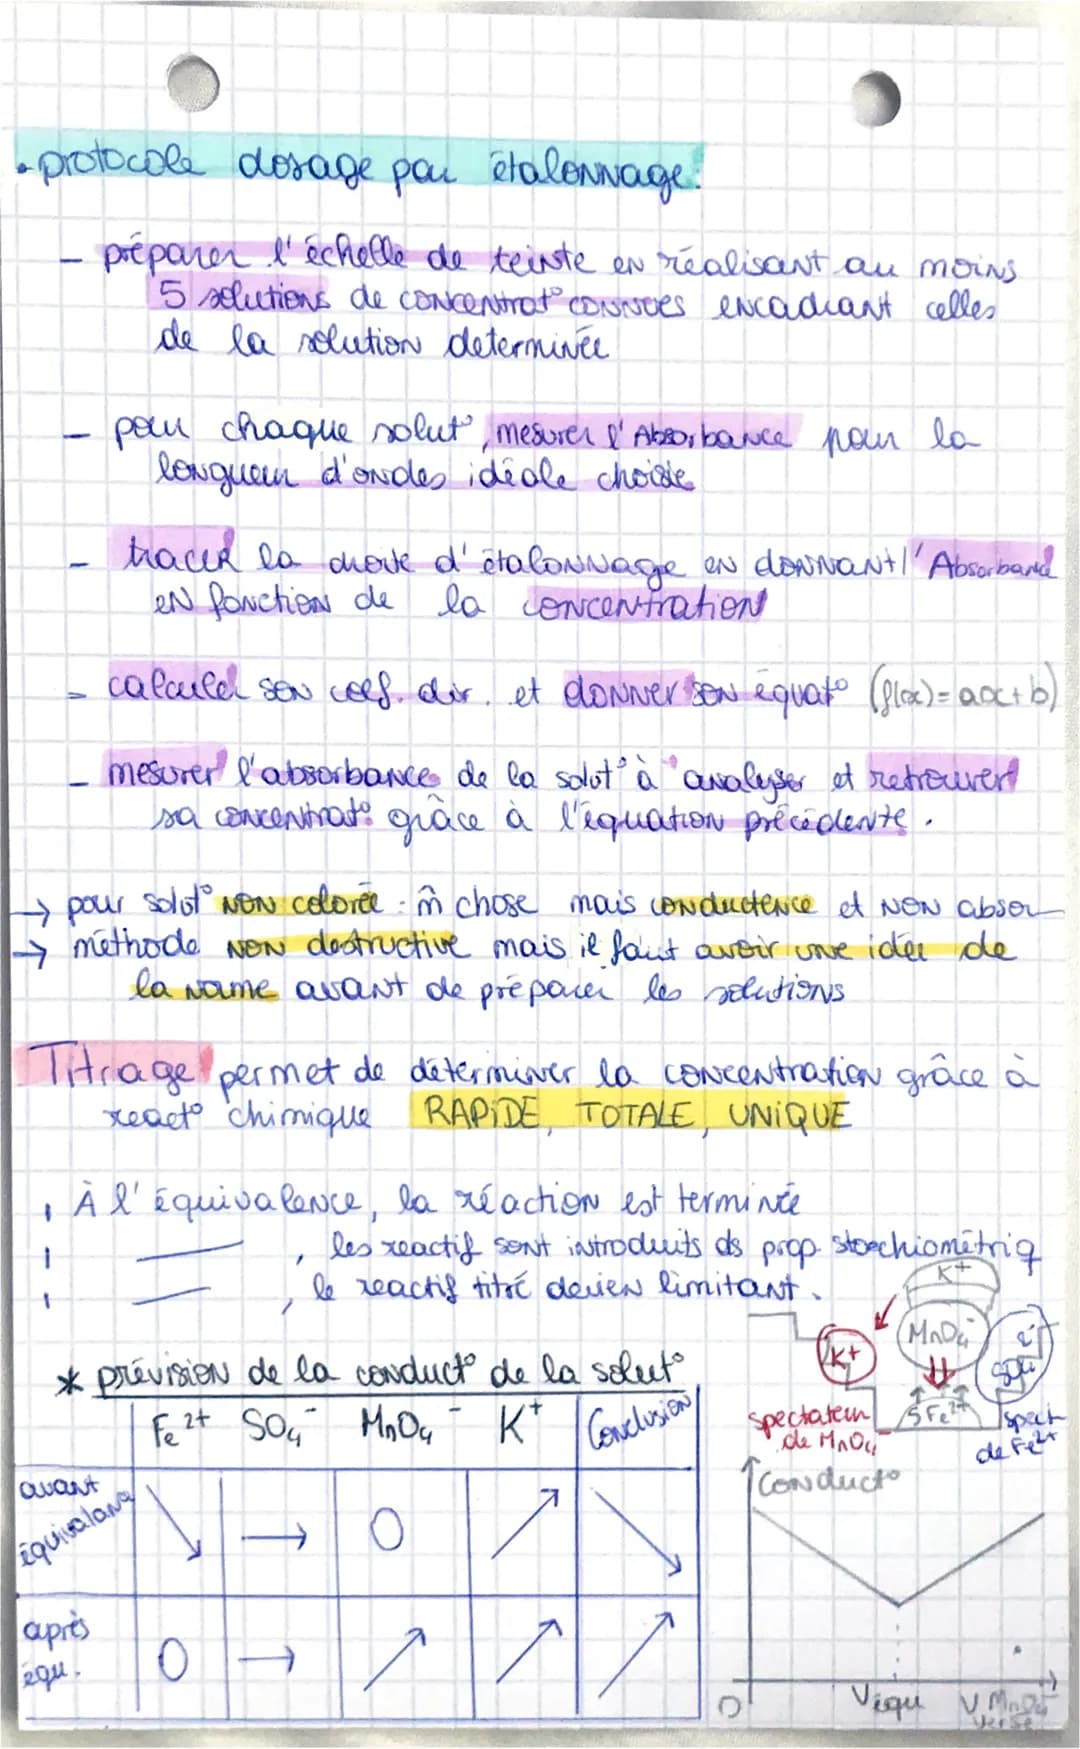 • protocole dosage par étalonnage:
– préparer l'échelle de teinte en réalisant au moins
5 solutions de concentrat° connues encadrant celles
de la solution determinée
– pour chaque solut°, mesurer l'Absorbance pour la
longueur d'ondes idéale choisie
– tracer la droite d'étalonnage en donnant l'Absorbance
en fonction de la concentration
– calculer son coef. dir. et donner son équat° (f(x)=ax+b)
– mesurer l'absorbance de la solut° à analyser et retrouver
sa concentrat° grâce à l'équation précédente.
→ pour solut° NON colorée : m̂ chose mais conductence et NON absor
→ méthode NON destructive mais il faut avoir une idée de
la name avant de préparer les solutions
Titrage permet de déterminer la concentration grâce à
react° chimique RAPIDE, TOTALE, UNIQUE
À l'équivalence, la réaction est terminée
, les reactif sont introduits ds prop. stoechiométriq
, le reactif titré devien limitant.
K+
MnO4-
K+
5 Fe2+
spectateur
de MnO4-
spect
de Fe2+
* prévision de la conduct° de la solut°
Fe2+ SO4- MnO4- K+ Conclusion
avant
équivalence
↘ → O ↗ ↘
après
équ.
O → ↗ ↗ ↗
Conduct°
O Véqu V MnO4-
versé